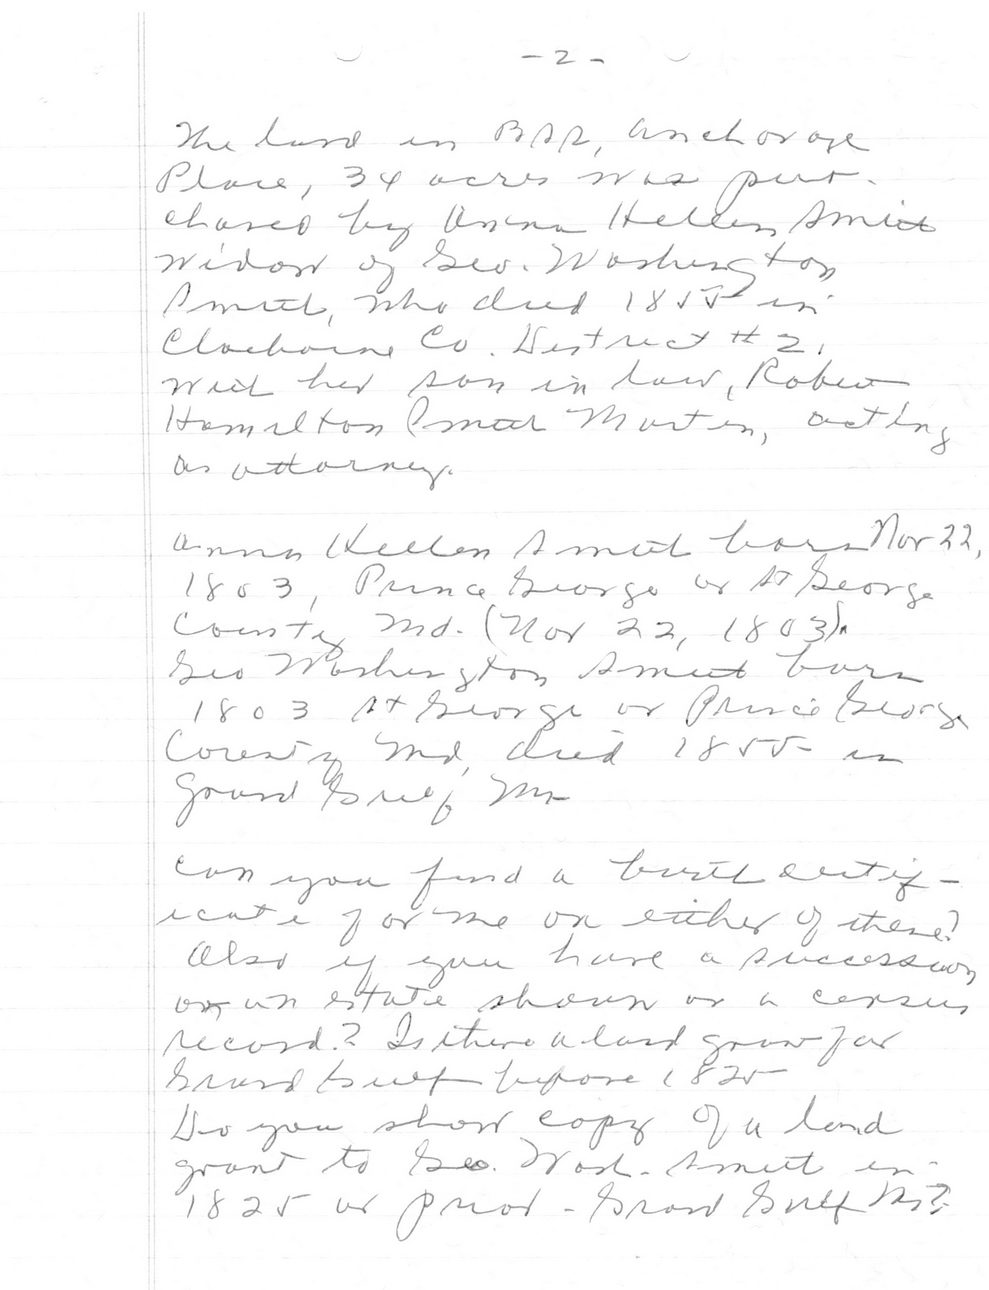 - 2 -
The land in BSR, Anchorage
Place, 34 acres was pur-
chased by Anna Hellen Smith
widow of Geo. Washington
Smith, who died 1855 in
Claiborne Co. District # 2,
with her son in law, Robert
Hamilton Smith Martin, acting
as attorney.
Anna Hellen Smith born Nov 22,
1803, Prince George or St George
County Md. (Nov 22, 1803).
Geo Washington Smith born
1803 St George or Prince George
County Md, died 1855 in
Grand Gulf Ms
Can you find a birth certif-
icate for me on either of these?
Also if you have a succession
or an estate shown or a census
record? Is there a land grant for
Grand Gulf before 1825
Do you show copy of a land
grant to Geo. Wash. Smith in
1825 or prior - Grand Gulf Ms?